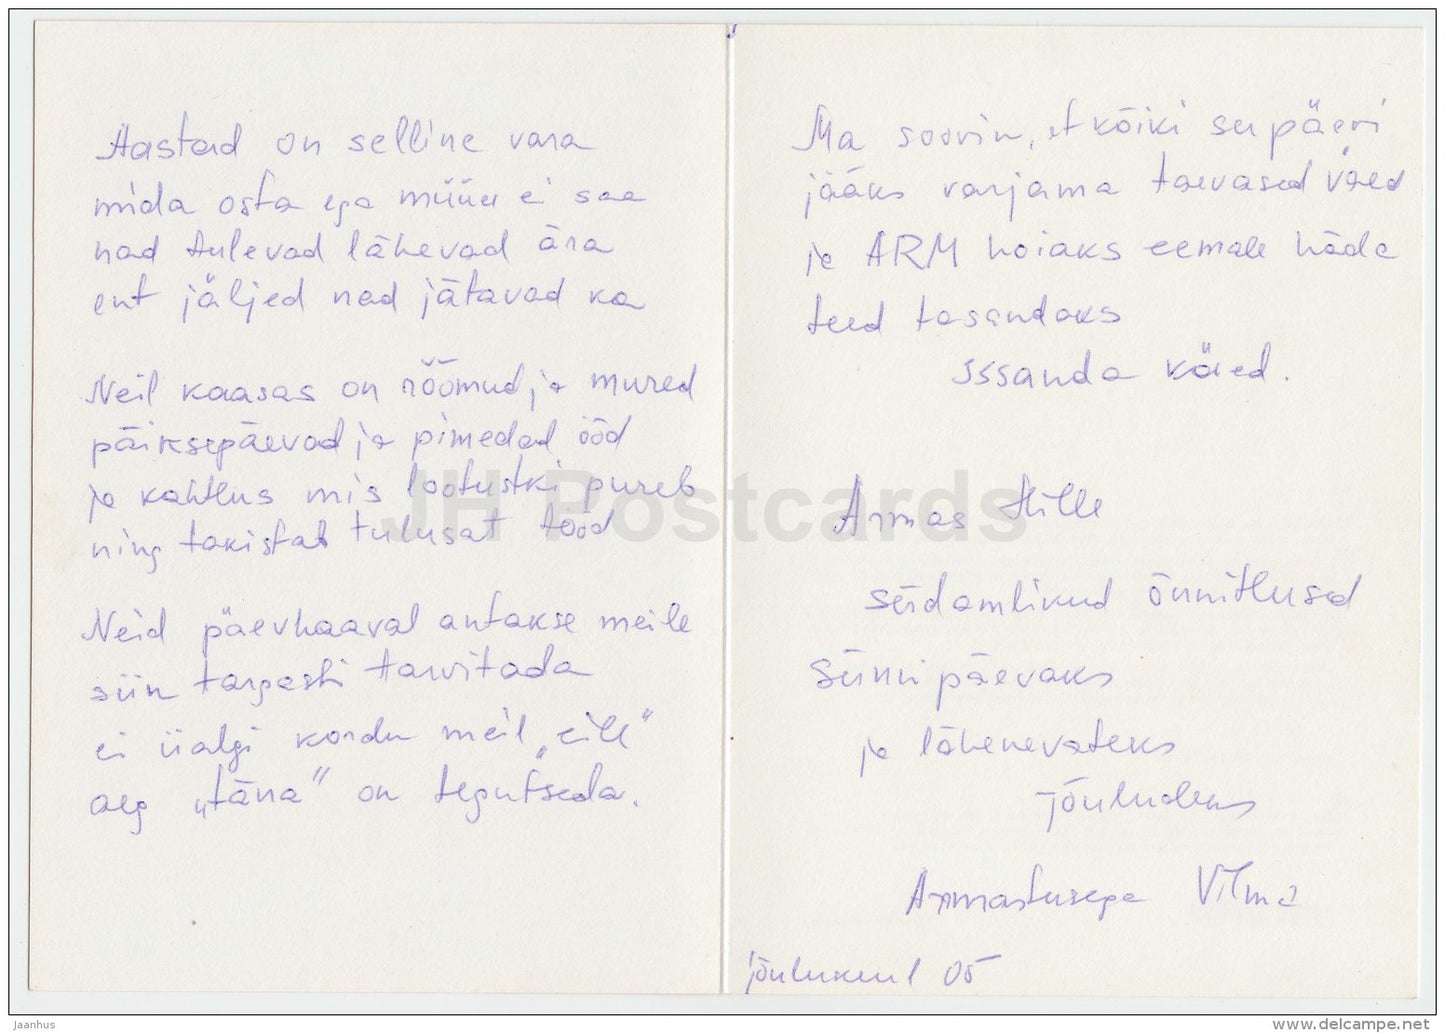 Aastad on selline vara
mida osta ega müüa ei saa
nad tulevad lähevad ära
ent jäljed nad jätavad ka
Neil kaasas on rõõmud ja mured
päiksepäevad ja pimedad ööd
ja kahtlus mis lootustki pureb
ning takistab tulusat tööd
Neid päevhaaval antakse meile
siin targasti tarvitada
ei iialgi kordu meil „eile“
aeg „täna“ on tegutseda.
Ma soovin, et kõiki su päevi
jääks varjama taevased väed
ja ARM hoiaks eemale häda
teed tasandaks
Issanda käed.
Armas Hille
südamlikud õnnitlused
sünnipäevaks
ja lähenevateks
jõuludeks
Armastusega Vilma
jõulukuul 05
JH Postcards
jaanhus
www.delcampe.net